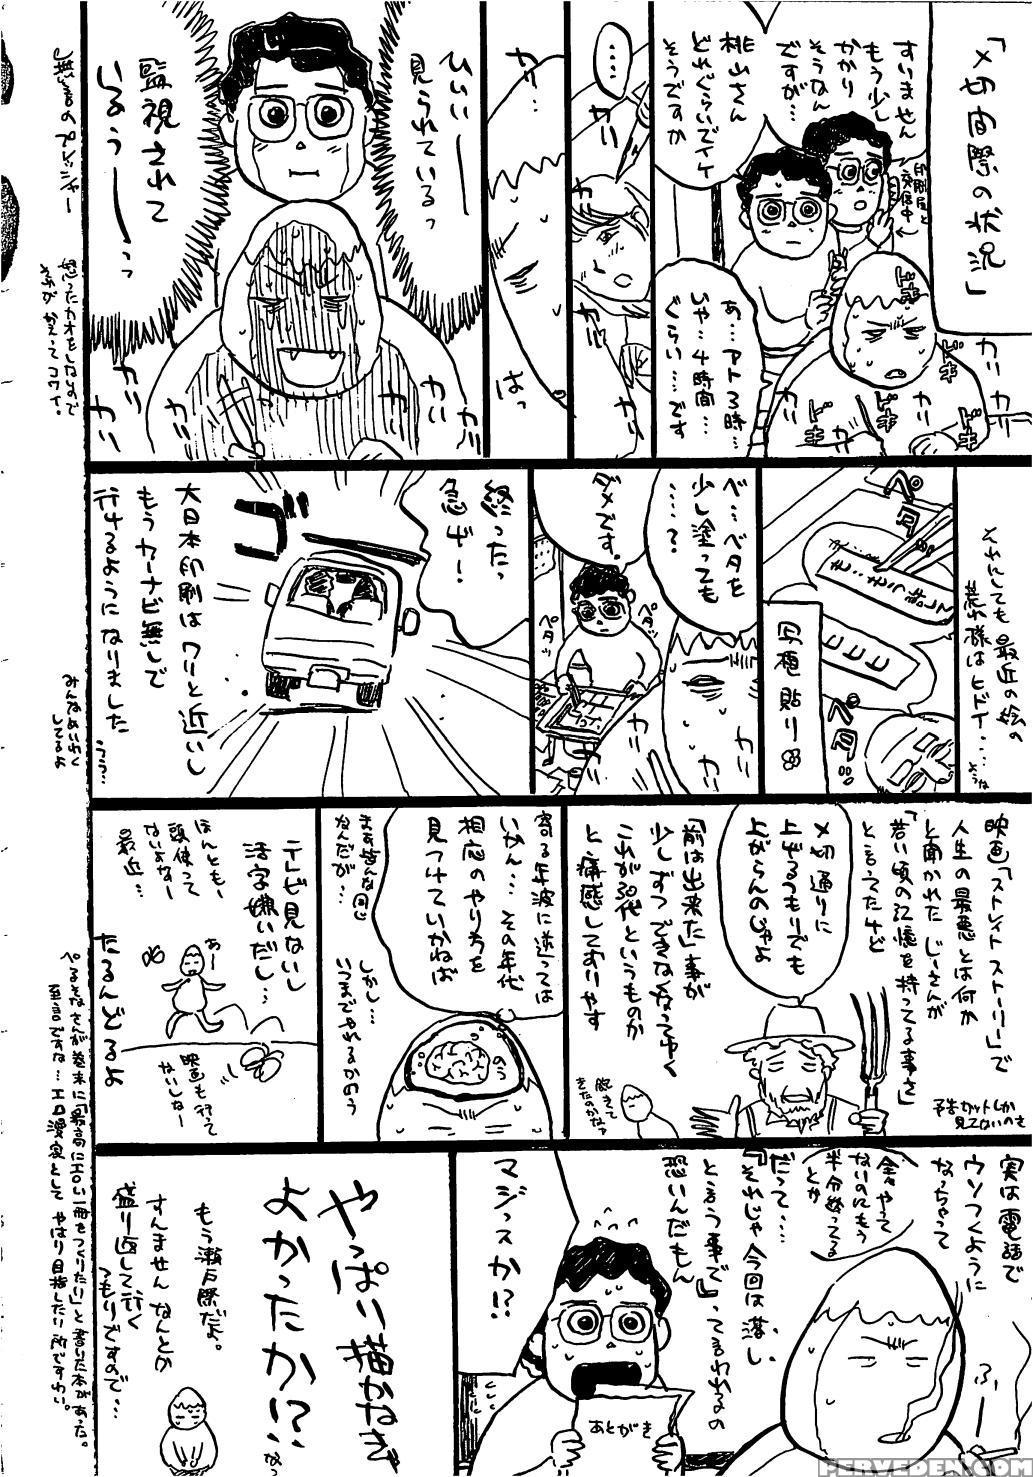 「〆切間際の状況」
すいません
もう少し
かかり
そうなん
ですが…
桃山さん
どれぐらいでイケ
そうですか
印刷屋と
交信中
あ…アト3時…
いや…4時間…
ぐらい……です
ドキ
ドキ
ドキ
ドキ
ドキ
カリ
カリ
……
カリ
カリ…
はっ
ひいいー
見られているっ
監視されて
いるうーーっっ
カリ
カリ
カリ
カリ
無言のプレッシャー
怒ったカオをしないので
それがかえってコワイ。
それにしても最近の絵の
荒れ様はヒドイ…
ペタ
ペタ
写植貼り
ベ…ベタを
少し塗っても
……?
ダメです。
ペタッ
ペタッ
カリ
カリ
終ったっ
急げー!
ゴ
大日本印刷はワリと近いし
もうカーナビ無しで
行けるようになりました
うう…
みんなめいわく
してるよ
映画「ストレイトストーリー」で
人生の最悪とは何か
と聞かれたじーさんが
「若い頃の記憶を持ってる事さ」
と言ってたけど
予告カットしか
見てないのを
〆切通りに
上げるつもりでも
上がらんのじゃよ
「前は出来た」事が
少しずつできなくなってゆく
これが30代というものか
と痛感しておりやす
寄る年波に逆っては
いかん…その年代
相応のやり方を
見つけていかねば
まあ皆んな同じ
なんだが…
しかし…
いつまでやれるかのう
テレビ見ないし
活字嫌いだし…
ほんともー
頭使って
ないよなー
最近…
あー
映画も行って
ないしなー
たるんどるよ
実は電話で
ウソつくように
なっちゃって
全然やって
ないのにもう
半分終ってる
とか
ふーー
だって…
『それじゃ今回は落し
という事で』って言われるの
恐いんだもん
マジっスか!?
あとがき
やっぱり描かなきゃ
よかったか!?
もう瀬戸際だよ。
すんませんなんとか
盛り返して行く
つもりですので…
ぺるそなさんが巻末に「最高にエロい一冊をつくりたい」と書いた本があった。
至言ですな…エロ漫家としてやはり目指したい所ですわい。
PERVEDEN.COM